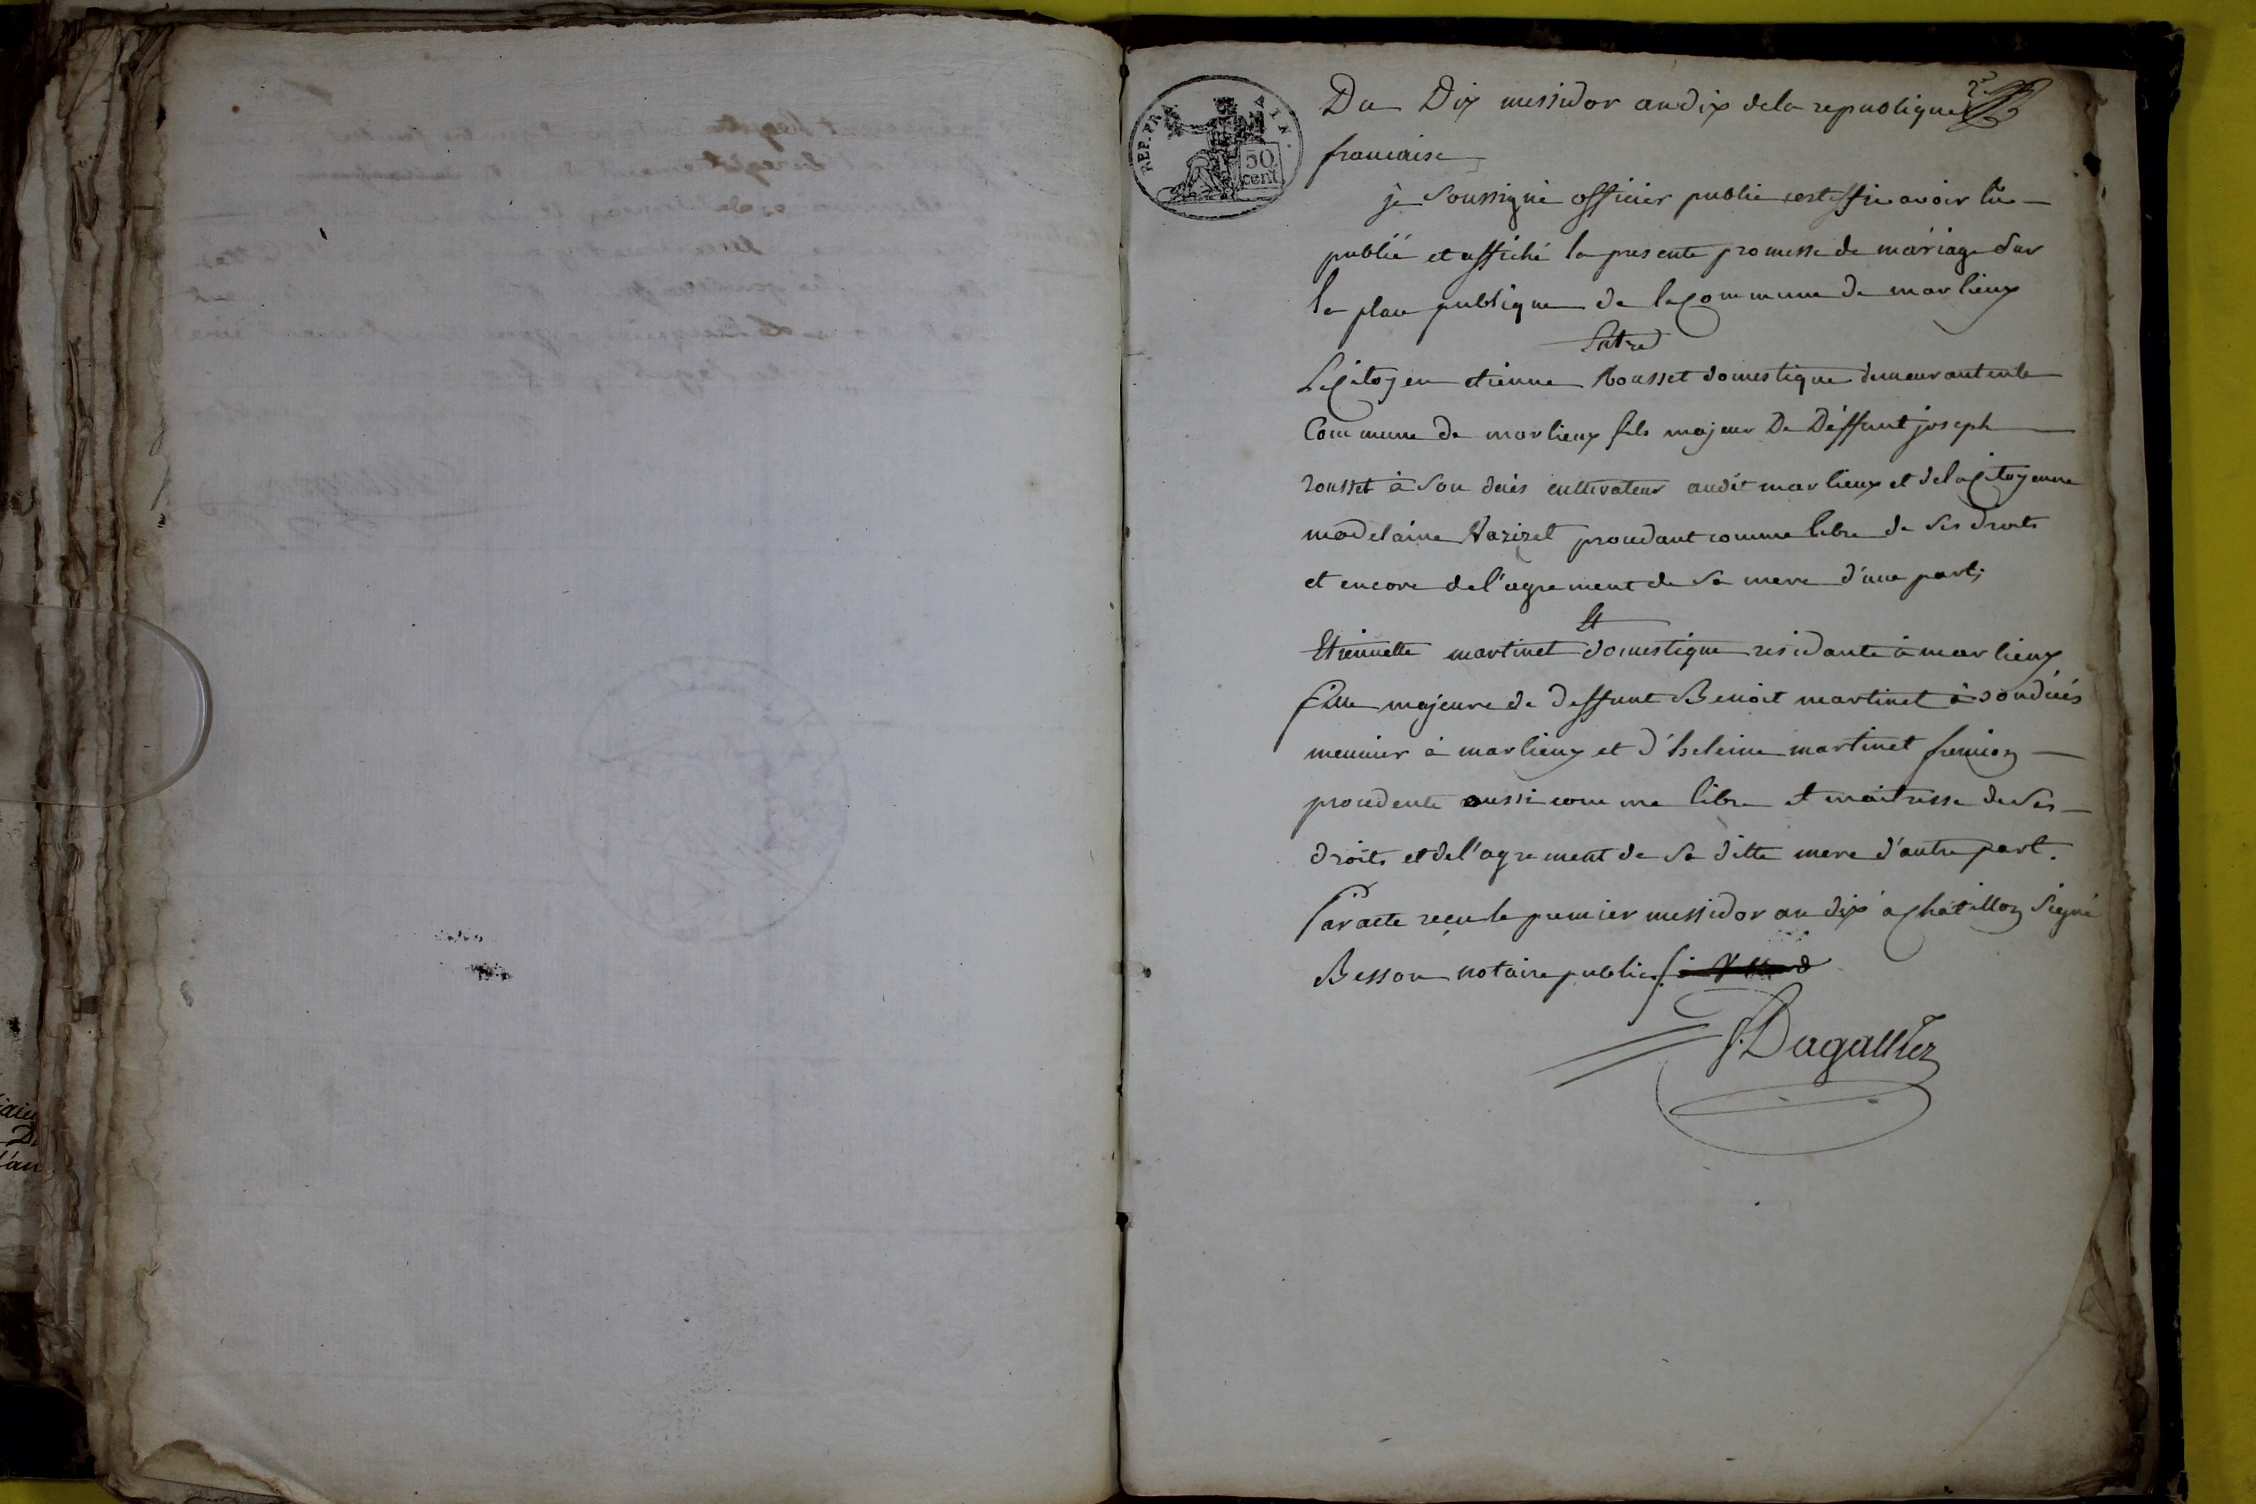 REP. FRA. AIN.
50
cent.
2e
Du Dix messidor an dix de la republique
francaise
je soussigné officier public certiffie avoir lu
publié et affiché la presente promesse de mariage sur
la place publique de la commune de marlieux
Entre
Le Citoyen etienne Rousset domestique demeurant en la
Commune de marlieux fils majeur De Deffunt joseph
rousset à son deцés cultivateur audit marlieux et de la Citoyenne
madelaine procedant comme libre de ses droits
et encore de l'agrement de sa mere d'une part;
Et
Etiennette martinet domestique residante à marlieux
fille majeure de deffunt Benoit martinet à son décés
meunier à marlieux et d'heleine martinet
procedente aussi comme libre et maitresse de ses
droits et de l'agrement de sa ditte mere d'autre part.
Par acte reçu le premier messidor an dix à chatillon signé
Besson notaire public
J. Dagallier